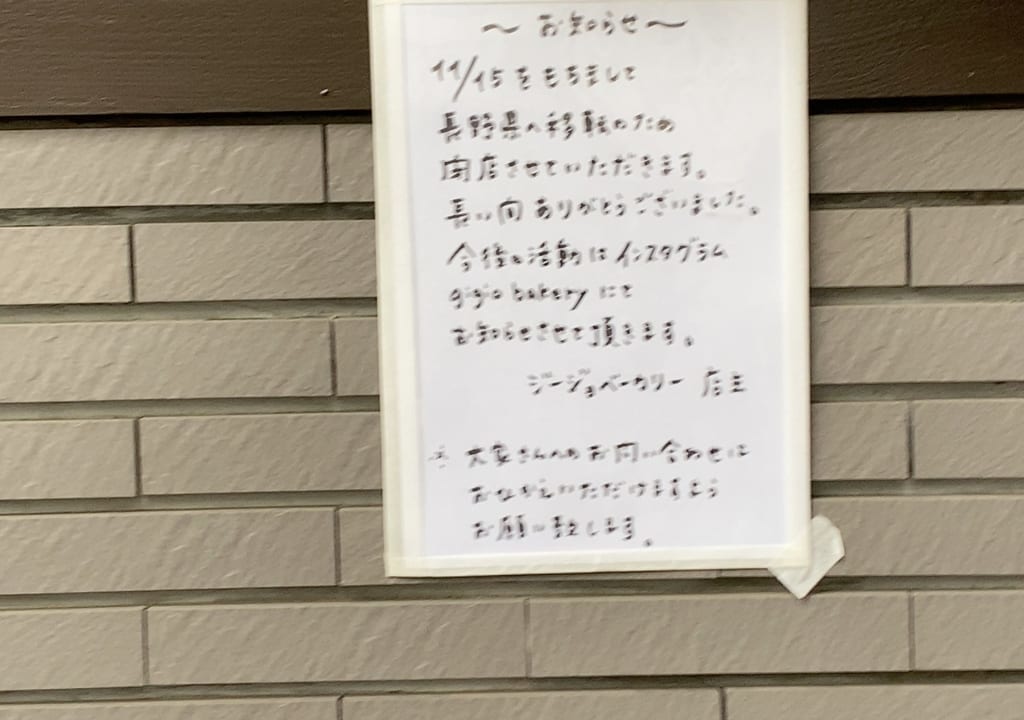 ～ お知らせ ～
11/15をもちまして
長野県へ移転のため
閉店させていただきます。
長い間ありがとうございました。
今後の活動はインスタグラム
gigio bakery にて
お知らせさせて頂きます。
ジージョベーカリー 店主
※ 大家さんへのお問い合わせは
おひかえいただけますよう
お願い致します。